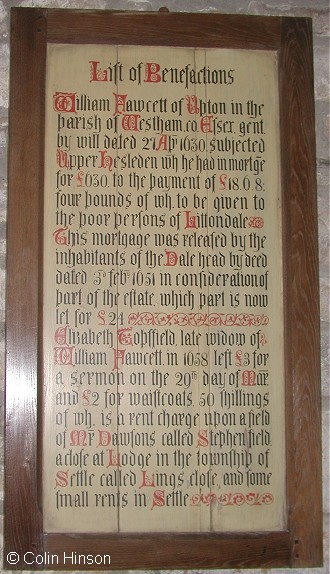 List of Benefactions
William Fawcett of Upton in the
parish of Westham, co, Essex, gent,
by will dated 27 Apˡ 1630, subjected
Upper Hesleden wʰ he had in mortgᵉ
for £630, to the payment of £18.6.8:
four pounds of wʰ, to be given to
the poor persons of Littondale
This mortgage was released by the
inhabitants of the Dale head by deed
dated 3ᵈ febʸ 1651 in consideration of
part of the estate, which part is now
let for £24
Elizabeth Topsfield, late widow of
William Fawcett, in 1658 left £3 for
a sermon on the 20ᵗʰ day of Mar
and £2 for waistcoats 50 shillings
of wʰ, is a rent charge upon a field
of Mʳ Dawsons called Stephenfield,
a close at Lodge in the township of
Settle called Lings close, and some
small rents in Settle
© Colin Hinson